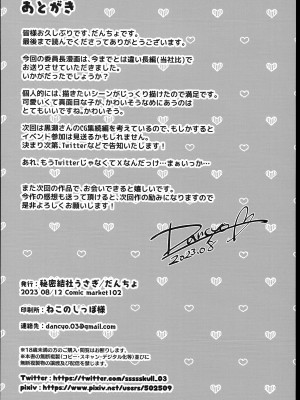 あとがき
皆様お久しぶりです、だんちょです。
最後まで読んでくださってありがとうございます。
今回の委員長漫画は、今までとは違い長編(当社比)で
お送りさせていただきました。
いかがだったでしょうか?
個人的には、描きたいシーンがじっくり描けたので満足です。
可愛いくて真面目な子が、かわいそうなめにあうのは
とてもいいですね。かわいそう。
次回は黒瀬さんのCG集続編を考えているので、もしかすると
イベント参加は見送るかもしれません。
決まり次第、Twitterなどで告知いたします!
あれ、もうTwitterじゃなくてXなんだっけ…まぁいっか…
また次回の作品で、お会いできると嬉しいです。
今作の感想も送って頂けると、次回作の励みになりますので
是非よろしくお願いします!
Dancyo
2023.08
発行:秘密結社うさぎ/だんちょ
2023 08/12 Comic market102
印刷所:ねこのしっぽ様
連絡先:dancyo.03@gmail.com
※18歳未満の方のご購入・閲覧はお断りします。
※本書の無断複製(コピー・スキャン・デジタル化等)並びに
無断複製物の譲渡及び配信等を禁じます。
Twitter:https://twitter.com/ssssskull_03
pixiv:https://www.pixiv.net/users/502509